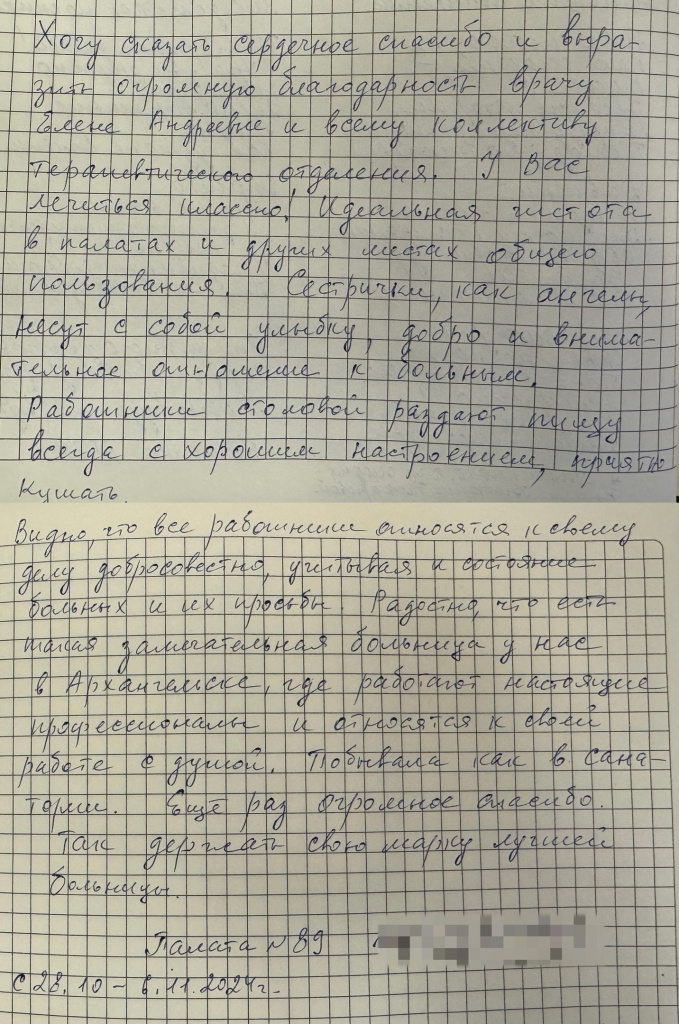 Хочу сказать сердечное спасибо и выра-
зить огромную благодарность врачу
Елене Андреевне и всему коллективу
терапевтического отделения. У Вас
лечиться классно! Идеальная чистота
в палатах и других местах общего
пользования. Сестрички, как ангелы,
несут с собой улыбку, добро и внима-
тельное отношение к больным.
Работники столовой раздают пищу
всегда с хорошим настроением, приятно
кушать.
Видно, что все работники относятся к своему
делу добросовестно, учитывая и состояние
больных и их просьбы. Радостно, что есть
такая замечательная больница у нас
в Архангельске, где работают настоящие
профессионалы и относятся к своей
работе с душой. Побывала как в сана-
тории. Ещё раз огромное спасибо.
Так держать свою марку лучшей
больницы.
Палата №89
С 28.10 – 6.11.2024г.